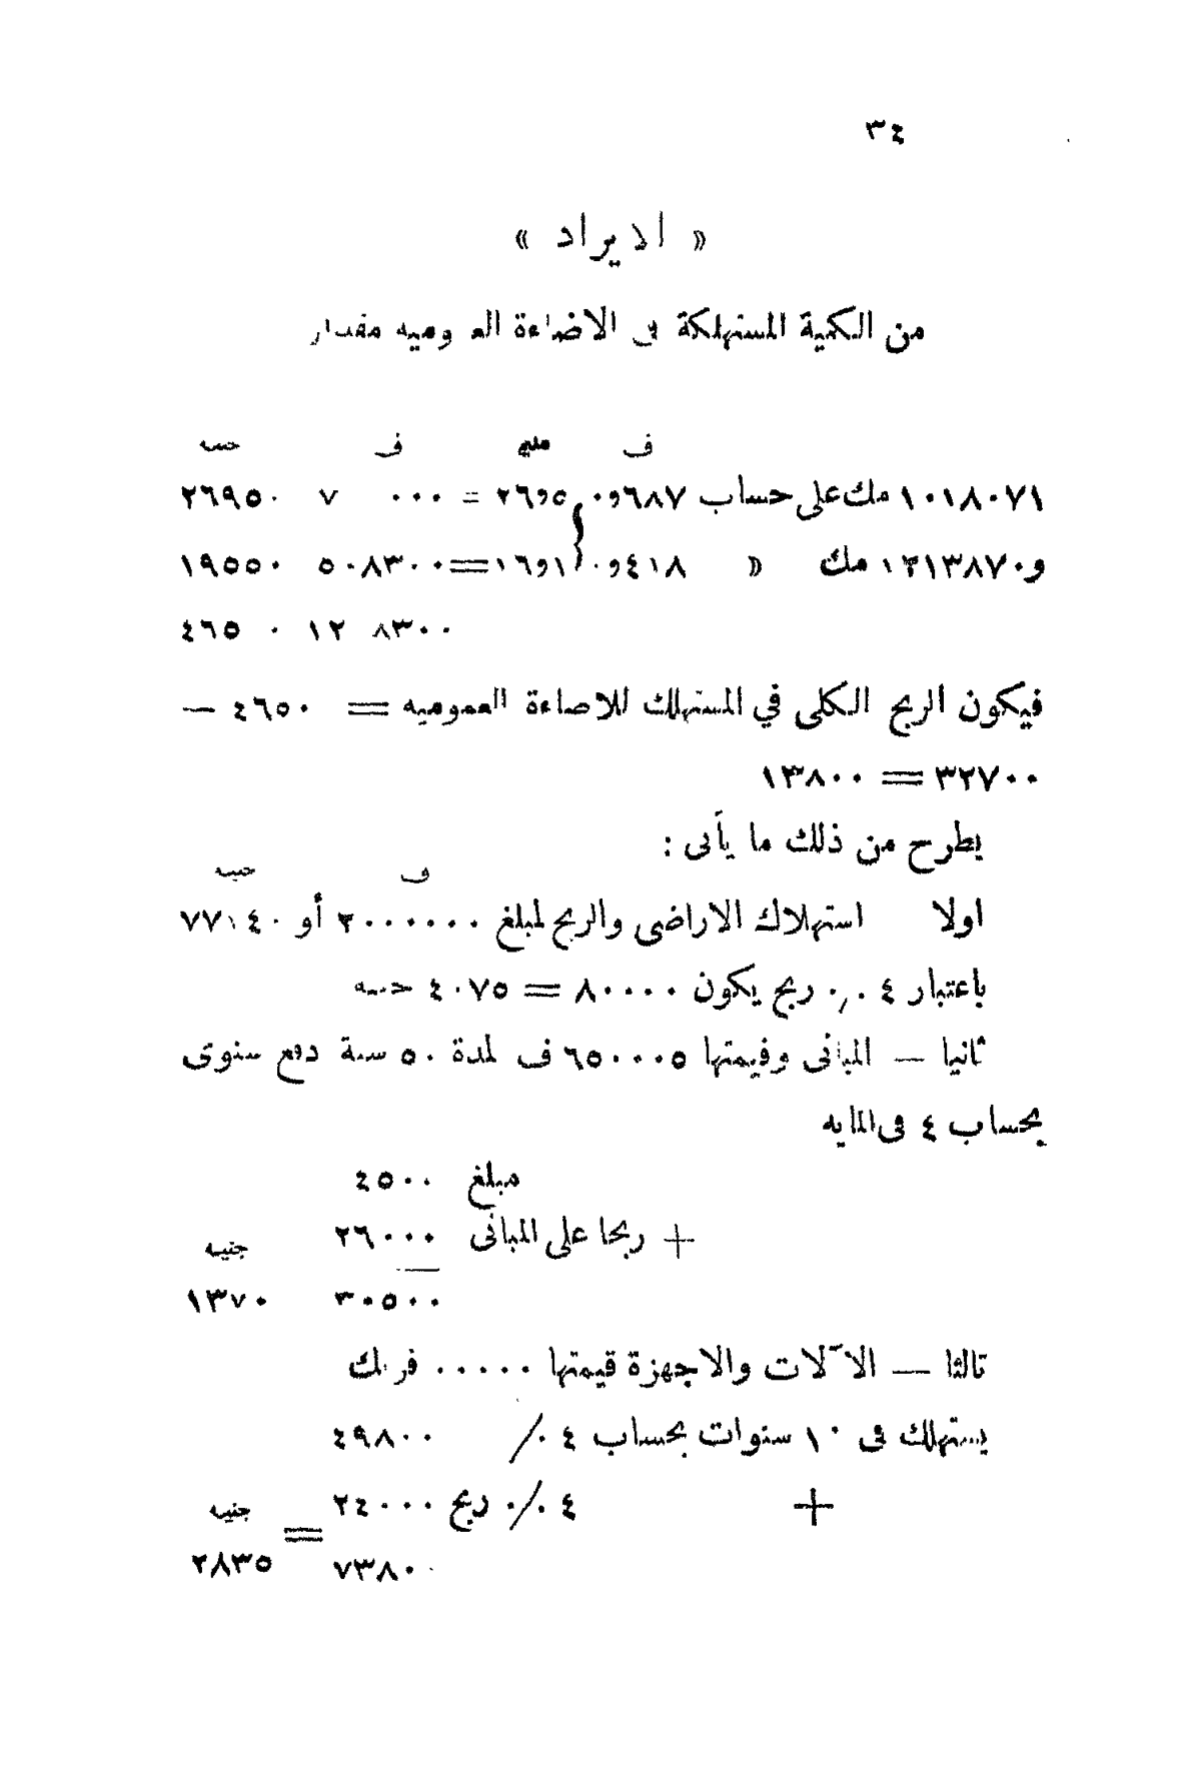 ٣٤
« الايراد »
من الكمية المستهلكة فى الاضاءة العوميه مقدار
ف مليم ف جنيه
١٠١٨٠٧١ مك على حساب ٠,٦٨٧ ٢٦,٥ = ٧٠٠٠ ٢٦٩٥٠
و١٢١٣٨٧٠ مك « ٠,٤١٨ ١٦,١ = ٥٠٨٣٠٠ ١٩٥٥٠
١٢٠٨٣٠٠ ٤٦٥٠
فيكون الربح الكلى في المستهلك للاضاءة العموميه = ٤٦٥٠٠ —
٣٢٧٠٠ = ١٣٨٠٠
يطرح من ذلك ما يأتى :
ف جنيه
اولا استهلاك الاراضى والربح لمبلغ ٢٠٠٠٠٠٠ أو ٧٧١٤٠
باعتبار ٤ ٠/٠ ربح يكون ٨٠٠٠٠ = ٤٠٧٥ جنيه
ثانيا — المبانى وقيمتها ٦٥٠٠٠٥ ف لمدة ٥٠ سنة دفع سنوى
بحساب ٤ فى المايه
مبلغ ٤٥٠٠
+ ربحا على المبانى ٢٦٠٠٠ جنيه
٣٠٥٠٠ ١٣٧٠
ثالثا — الآلات والاجهزة قيمتها ٠٠٠٠٠ فرنك
يستهلك فى ١٠ سنوات بحساب ٤ ٠/ ٤٩٨٠٠
+ ٤ ٠/٠ ربح ٢٤٠٠٠ جنيه
٧٣٨٠٠ = ٢٨٣٥